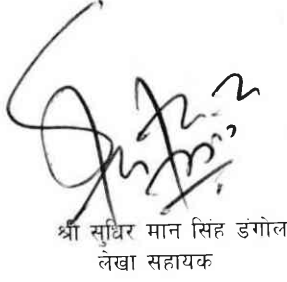 श्री सुधिर मान सिंह डंगोल
लेखा सहायक